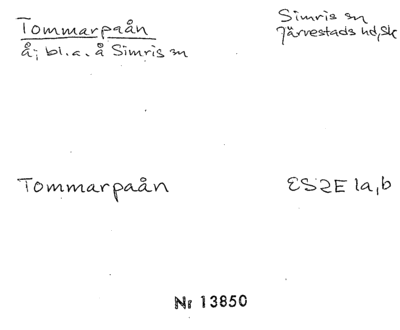 Tommarpaån
å; bl.a. å Simris sn
Simris sn
Järrestads hd, Sk
Tommarpaån
ES2E 1a,b
Nr 13850